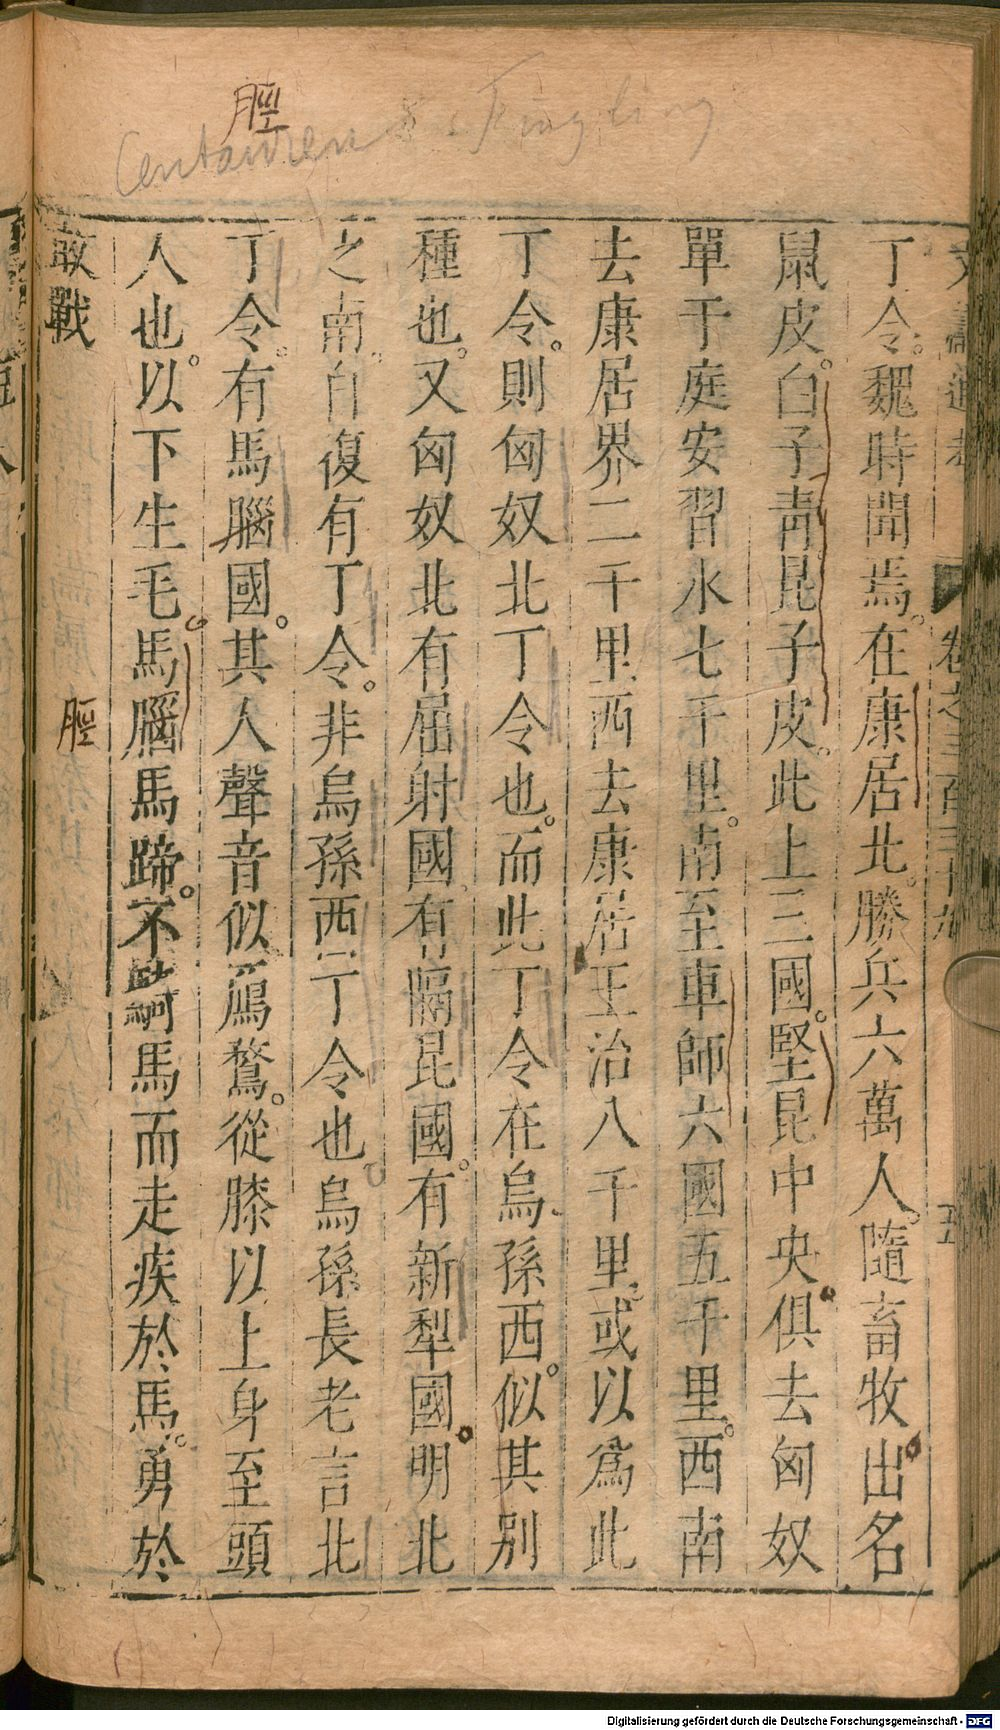 脛
Centauren
丁令。魏時聞焉。在康居北。勝兵六萬人。隨畜牧。出名
鼠皮。白子青昆子皮。此上三國。堅昆中央。俱去匈奴
單于庭安習水七千里。南至車師六國五千里。西南
去康居界二千里西去康居王治八千里。或以爲此
丁令。則匈奴北丁令也。而此丁令在烏孫西。似其別
種也。又匈奴北有屈射國。有隔昆國。有新犁國。明北
之南。自復有丁令。非烏孫西丁令也。烏孫長老言北
丁令。有馬腦國。其人聲音似鴈鶩。從膝以上身至頭
人也。以下生毛。馬腦馬蹄。不騎馬而走疾於馬。勇於
脛
敢戰
五
Digitalisierung gefördert durch die Deutsche Forschungsgemeinschaft - DFG